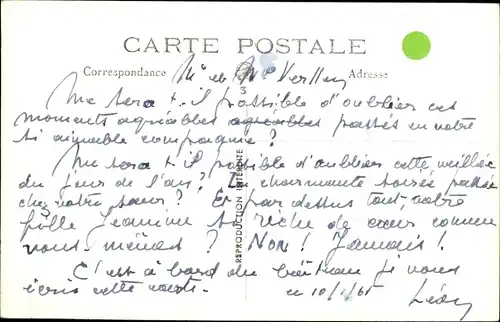 CARTE POSTALE
Correspondance Mr et Mme Adresse
3
Me sera t-il possible d'oublier ces
moments agréables agréables passés en votre
si aimable compagnie ?
Me sera t-il possible d'oublier cette veillée
du jour de l'an ? La charmante soirée passée
chez votre sœur ? Et par dessus tout, votre
Jeanine si riche de cœur comme
vous-mêmes ? Non ! Jamais !
C'est à bord du bateau je vous
écris cette carte.
le 10/1/65 Léon
REPRODUCTION INTERDITE